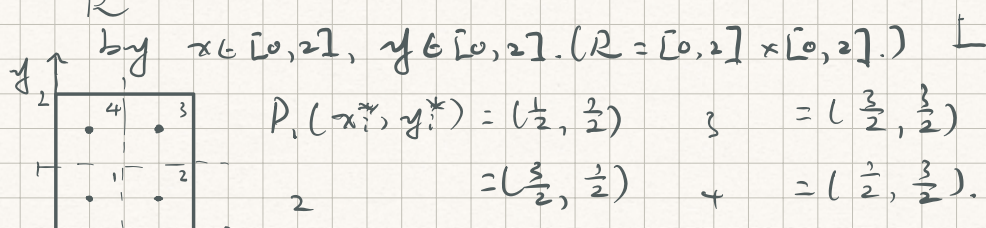 R
by x ∈ [0,2], y ∈ [0,2]. (R = [0,2] × [0,2].)
y
2 4 3
P₁(xᵢ*, yᵢ*) = (1/2, 1/2) 3 = (3/2, 3/2)
1 1 2
2 = (3/2, 1/2) 4 = (1/2, 3/2).